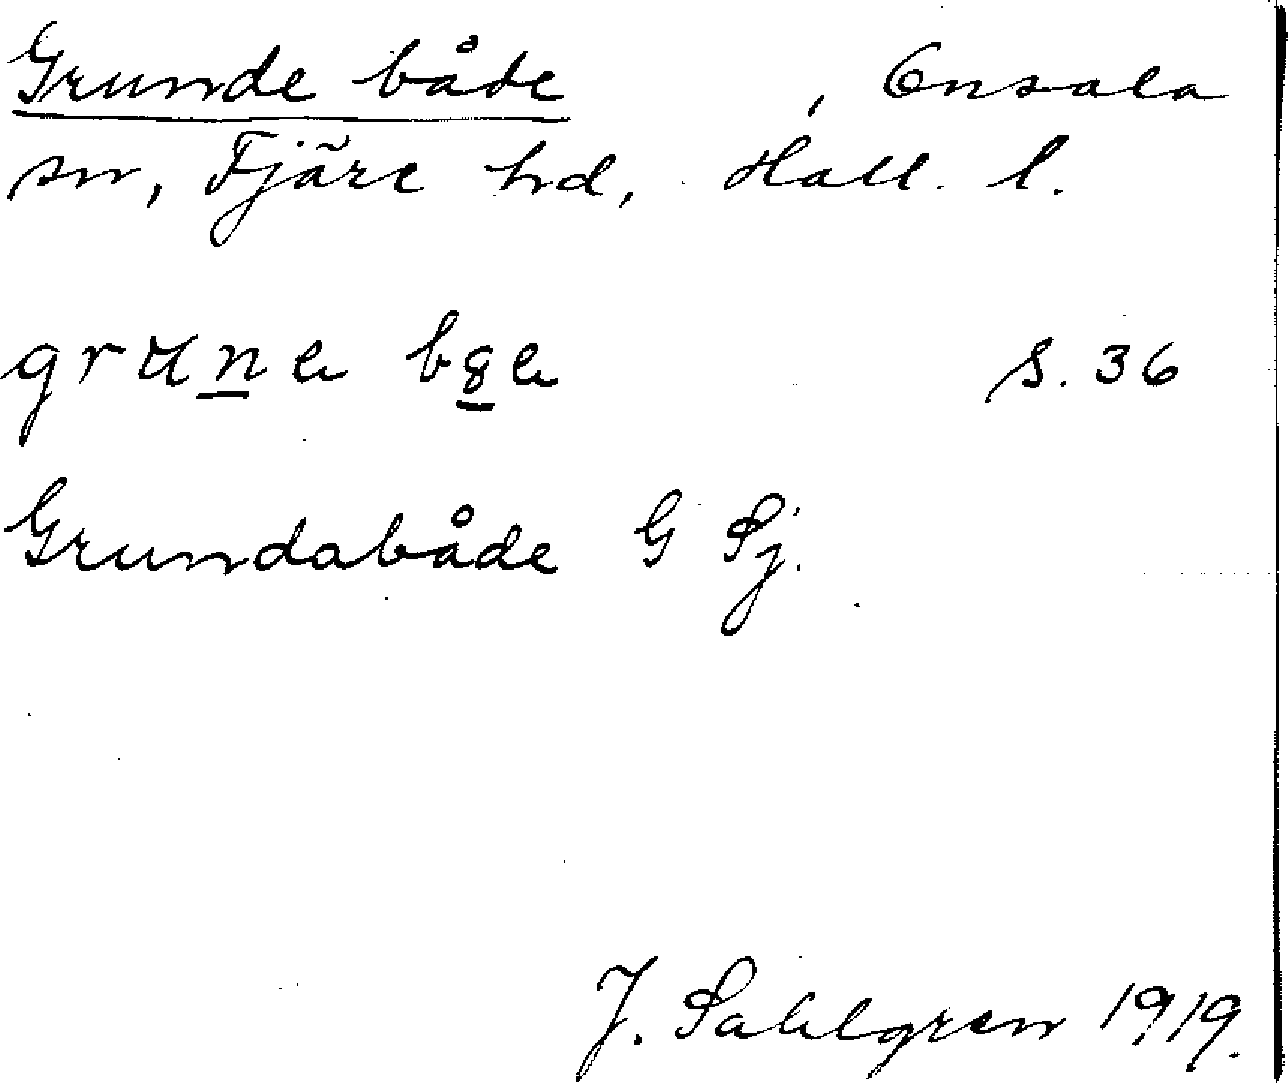 Grunde både, Onsala
sn, Fjäre hd, Hall. l.
S. 36
Grundabåde G Sj.
J. Sahlgren 1919.